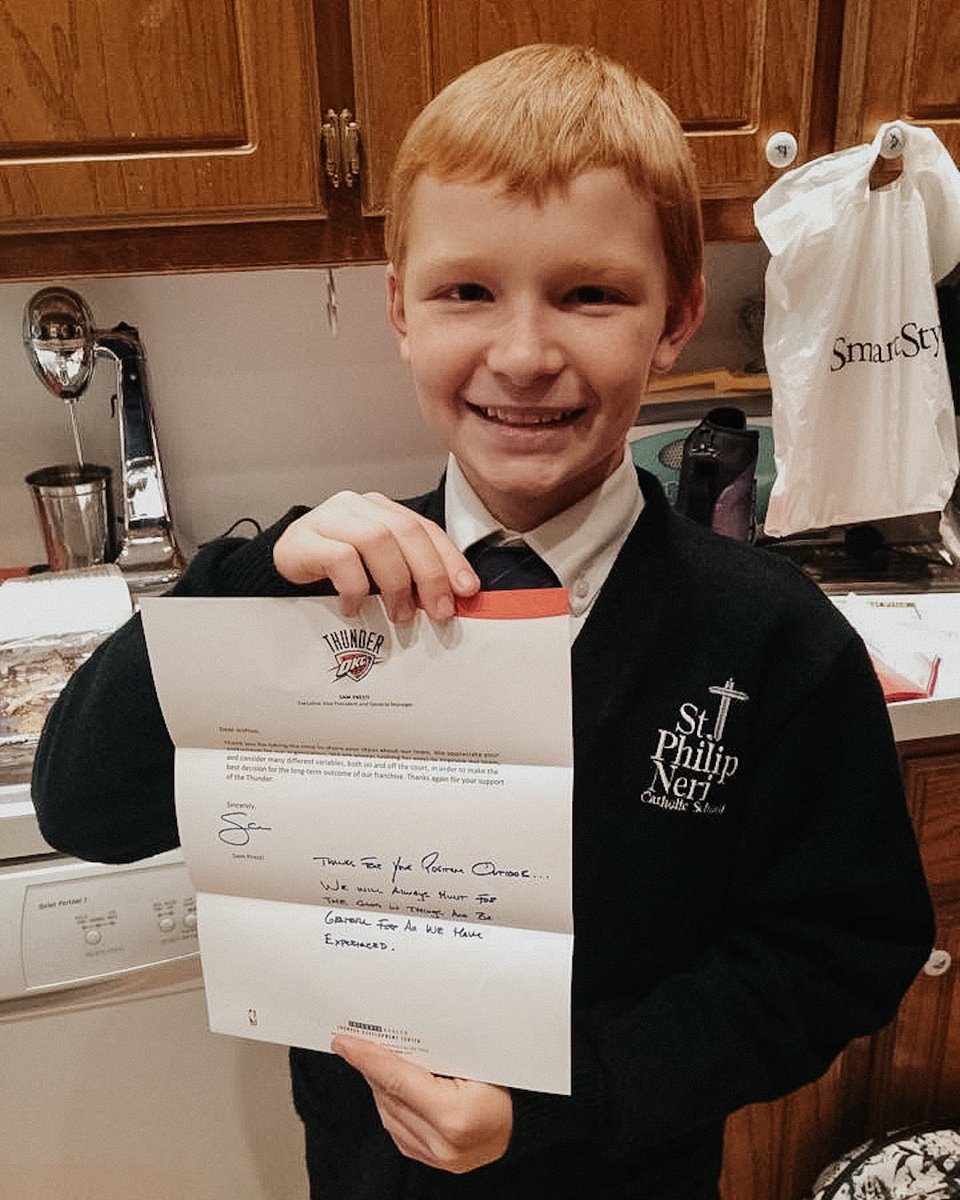 SmartSty
THUNDER
OKC
SAM PRESTI
Executive Vice President and General Manager
Thank you for taking the time to share your ideas about our team. We appreciate your
and consider many different variables, both on and off the court, in order to make the
best decision for the long-term outcome of our franchise. Thanks again for your support
of the Thunder.
Sincerely,
Sam
Sam Presti
THANKS FOR YOUR POSITIVE OUTLOOK...
WE WILL ALWAYS HUNT FOR
THE GOOD IN THINGS AND BE
GRATEFUL FOR ALL WE HAVE
EXPERIENCED.
INTEGRIS HEALTH
THUNDER DEVELOPMENT CENTER
St.
Philip
Neri
Catholic School
Quiet Partner I